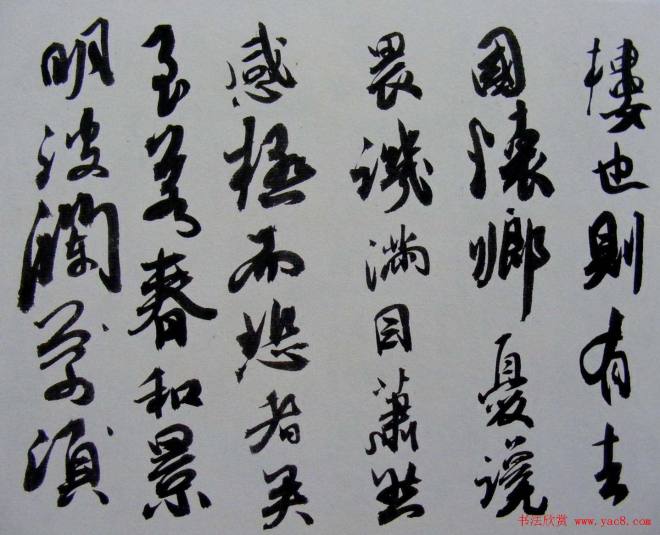 樓也則有去
國懷鄉憂讒
畏譏滿目蕭然
感極而悲者矣
至若春和景
明波瀾萬頃
书法欣赏 www.yac8.com